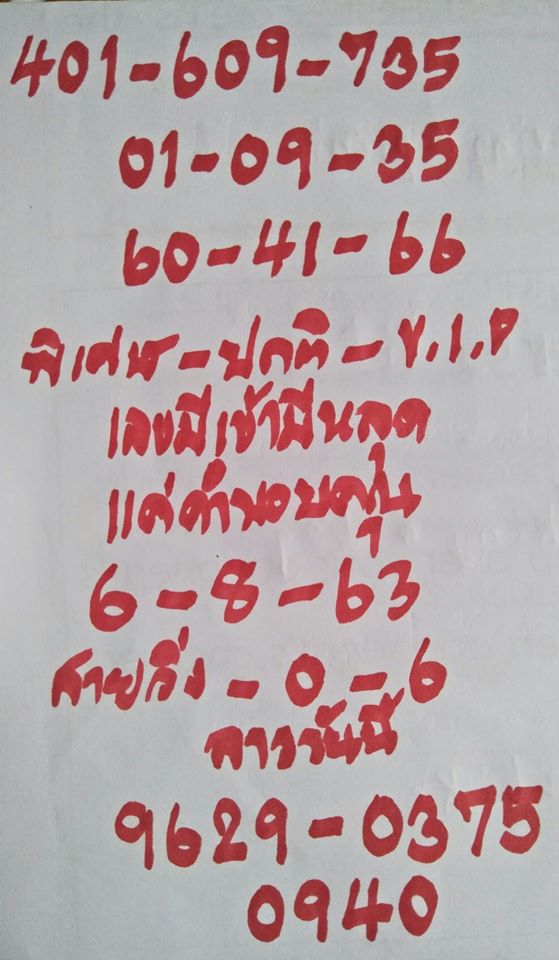 401-609-735
01-09-35
60-41-66
พิเศษ-ปกติ-V.I.P
เลขมีเข้ามีหลุด
แค่คำขอบคุณ
6-8-63
สายวิ่ง-0-6
ลาววันนี้
9629-0375
0940